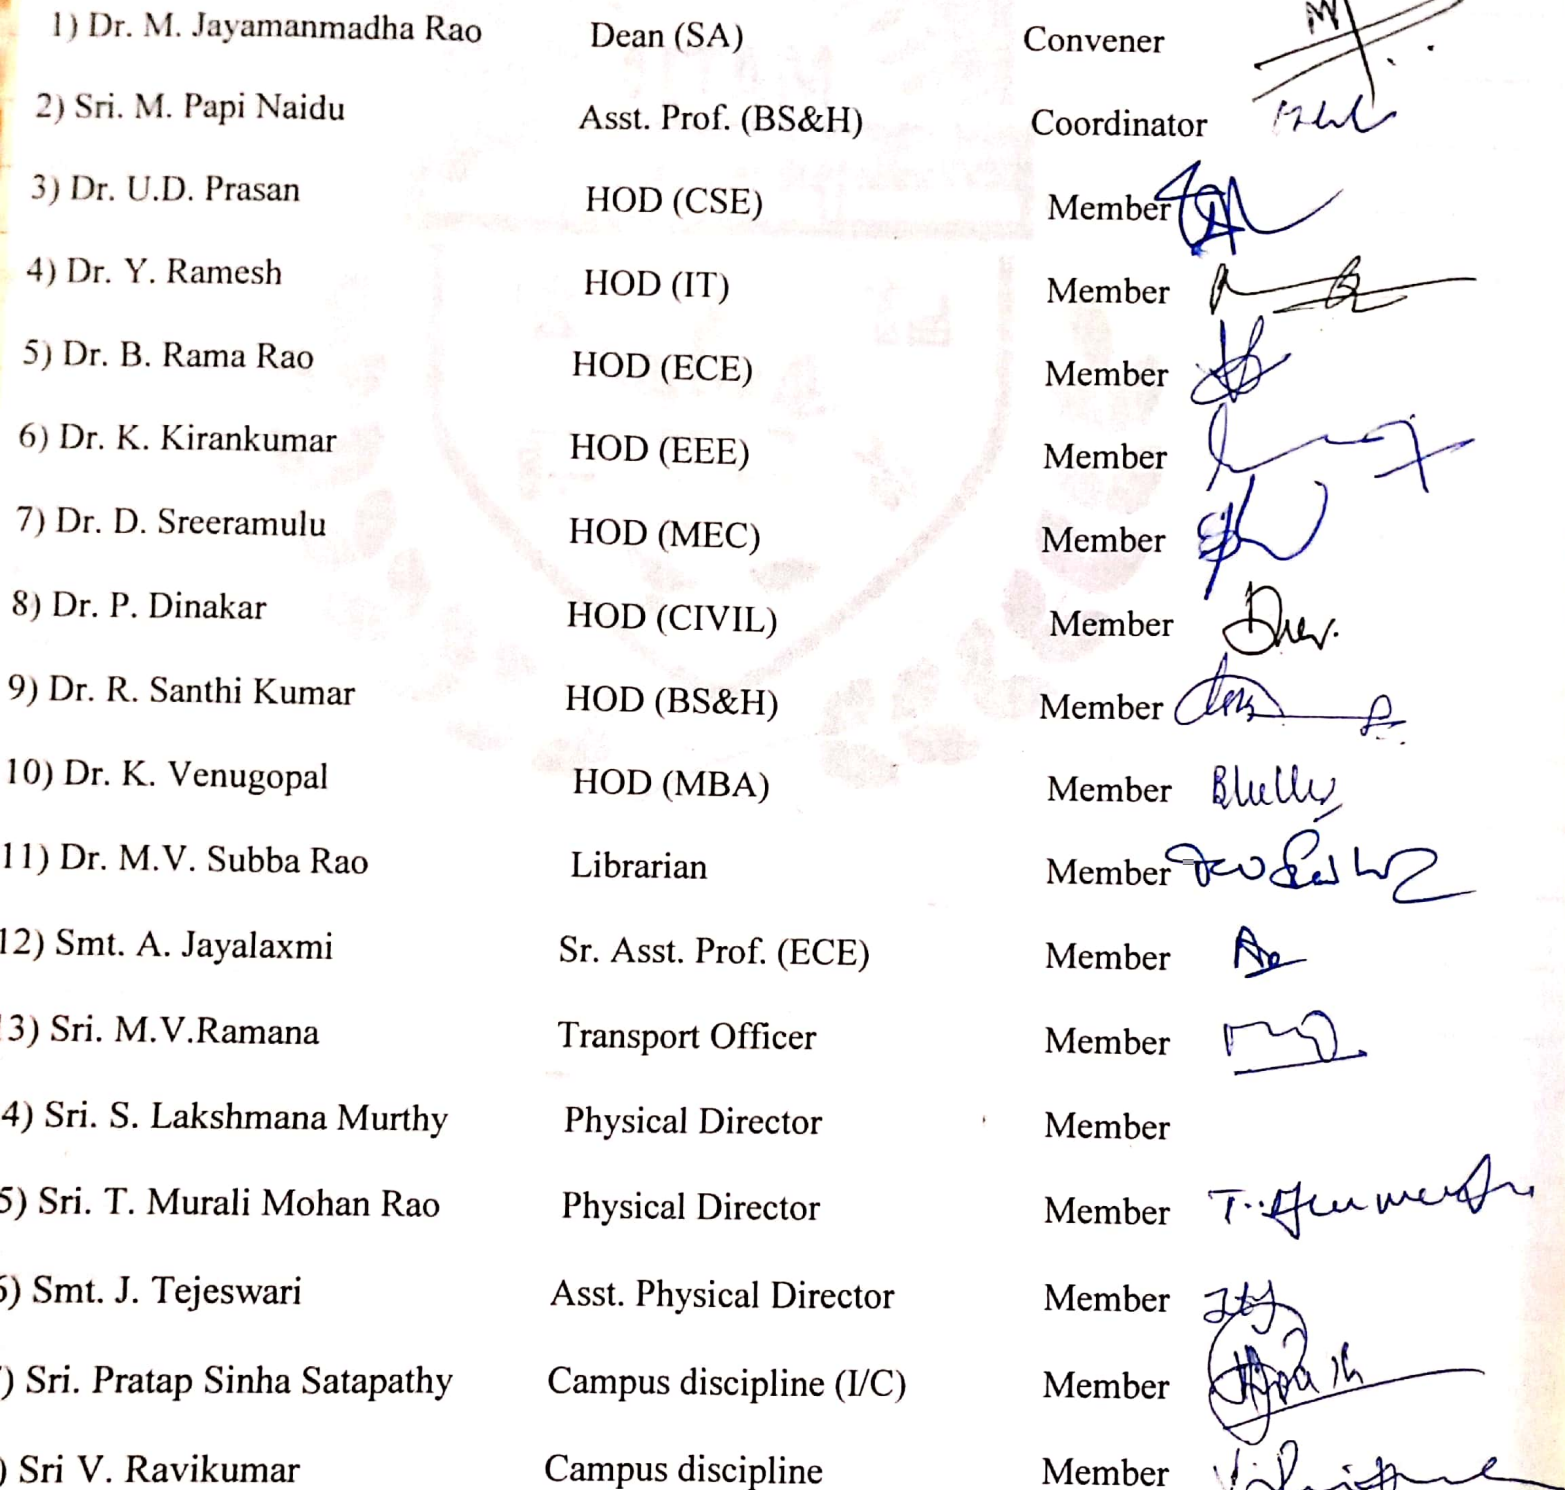 1) Dr. M. Jayamanmadha Rao Dean (SA) Convener
2) Sri. M. Papi Naidu Asst. Prof. (BS&H) Coordinator
3) Dr. U.D. Prasan HOD (CSE) Member
4) Dr. Y. Ramesh HOD (IT) Member
5) Dr. B. Rama Rao HOD (ECE) Member
6) Dr. K. Kirankumar HOD (EEE) Member
7) Dr. D. Sreeramulu HOD (MEC) Member
8) Dr. P. Dinakar HOD (CIVIL) Member
9) Dr. R. Santhi Kumar HOD (BS&H) Member
10) Dr. K. Venugopal HOD (MBA) Member
11) Dr. M.V. Subba Rao Librarian Member
12) Smt. A. Jayalaxmi Sr. Asst. Prof. (ECE) Member
3) Sri. M.V.Ramana Transport Officer Member
4) Sri. S. Lakshmana Murthy Physical Director Member
5) Sri. T. Murali Mohan Rao Physical Director Member
) Smt. J. Tejeswari Asst. Physical Director Member
) Sri. Pratap Sinha Satapathy Campus discipline (I/C) Member
) Sri V. Ravikumar Campus discipline Member